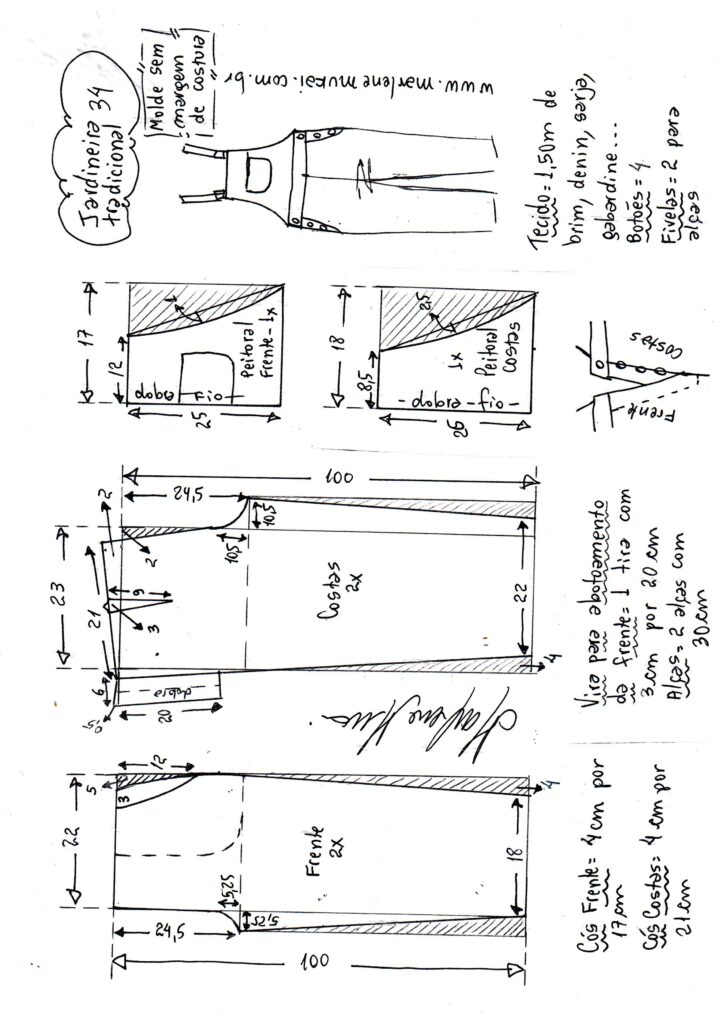 Jardineira 34
tradicional
Molde sem
margem
de costura
www.marlenemukai.com.br
Tecido = 1,50m de
brim, denin, sarja,
gabardine...
Botões = 4
Fivelas = 2 para
alças
17
12
1
Peitoral
Frente - 1x
dobra
- Fio -
25
18
8,5
2,5
1x
Peitoral
Costas
dobra
- fio -
26
Frente
Costas
100
24,5
2
23
21
2
9
3
10,5
10,5
Costas
2x
22
6
0,5
dobra
20
4
Vira para abotoamento
da frente = 1 tira com
3 cm por 20 cm
Alças = 2 alças com
30 cm
22
12
5
3
Frente
2x
5,25
5,25
24,5
18
4
100
Cós Frente = 4 cm por
17 cm
Cós Costas = 4 cm por
21 cm